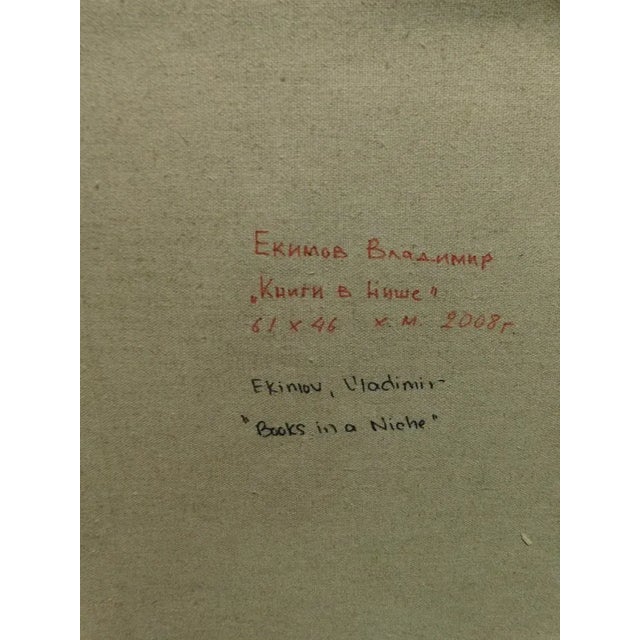 Екимов Владимир
„Книги в Нише"
61 x 46 х.м. 2008г.
Ekimov, Vladimir
"Books in a Niche"